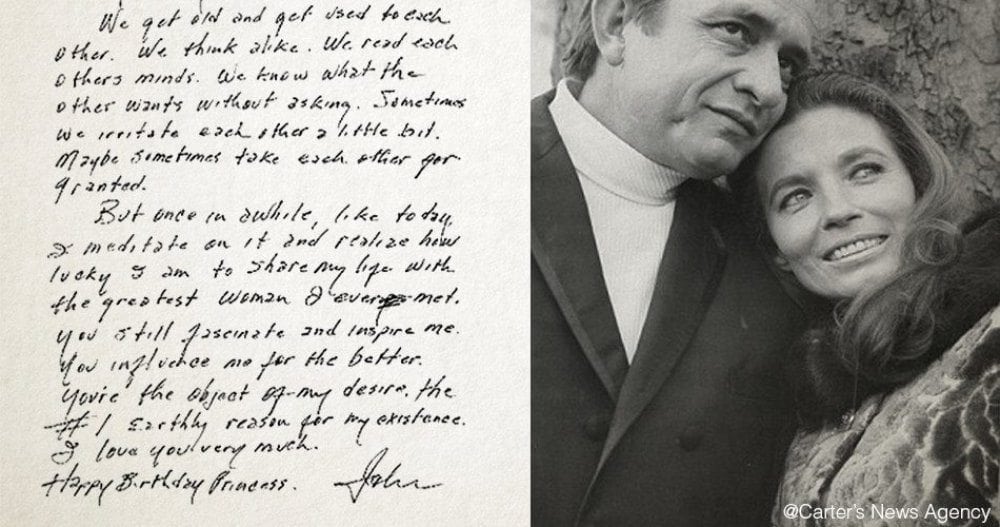 We get old and get used to each
other. We think alike. We read each
others minds. We know what the
other wants without asking. Sometimes
we irritate each other a little bit.
Maybe sometimes take each other for
granted.
But once in awhile, like today,
I meditate on it and realize how
lucky I am to share my life with
the greatest woman I ever met.
You still fascinate and inspire me.
You influence me for the better.
You're the object of my desire, the
#1 Earthly reason for my existence.
I love you very much.
Happy Birthday Princess. John
@Carter's News Agency